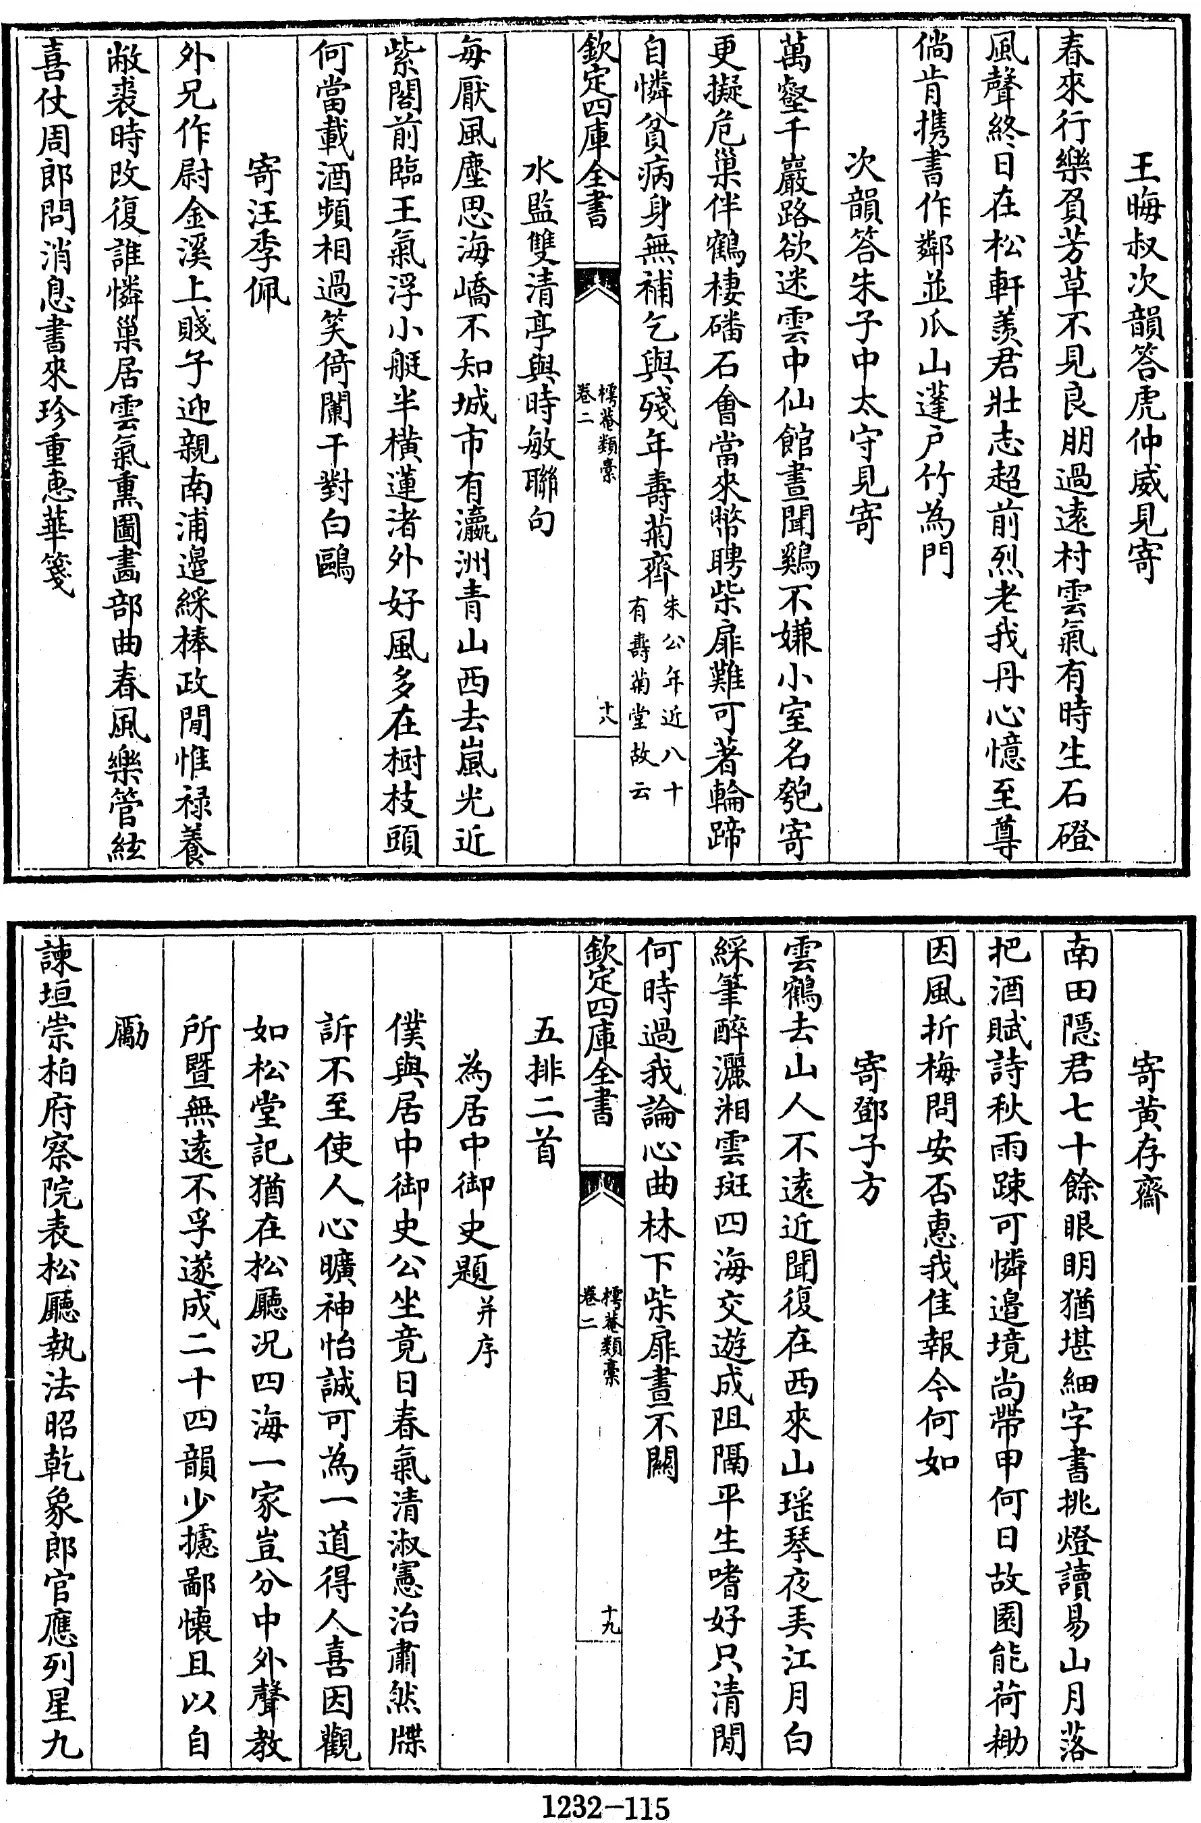 王晦叔次韻答虎仲威見寄
春來行樂負芳草不見良朋過遠村雲氣有時生石磴
風聲終日在松軒羨君壯志超前烈老我丹心憶至尊
倘肯携書作鄰並瓜山蓬户竹為門
次韻答朱子中太守見寄
萬壑千巖路欲迷雲中仙館晝聞鷄不嫌小室名匏寄
更擬危巢伴鶴棲磻石會當來幣聘柴扉難可著輪蹄
自憐貧病身無補乞與殘年壽菊齊朱公年近八十有壽菊堂故云
欽定四庫全書
樗菴類藁
卷二
十八
水監雙清亭與時敏聯句
每厭風塵思海嶠不知城市有瀛洲青山西去嵐光近
紫閣前臨王氣浮小艇半橫蓮渚外好風多在樹枝頭
何當載酒頻相過笑倚闌干對白鷗
寄汪季佩
外兄作尉金溪上賤子迎親南浦邊綵棒政閒惟禄養
敝裘時改復誰憐巢居雲氣熏圖畵部曲春風樂管絃
喜仗周郎問消息書來珍重惠華箋
寄黄存齋
南田隱君七十餘眼明猶堪細字書挑燈讀易山月落
把酒賦詩秋雨踈可憐邉境尚帶甲何日故園能荷耡
因風折梅問安否惠我佳報今何如
寄鄧子方
雲鶴去山人不遠近聞復在西來山瑶琴夜弄江月白
綵筆醉灑湘雲斑四海交遊成阻隔平生嗜好只清閒
何時過我論心曲林下柴扉晝不關
欽定四庫全書
樗菴類藁
卷二
十九
五排二首
為居中御史題并序
僕與居中御史公坐竟日春氣清淑憲治肅然牒
訴不至使人心曠神怡誠可為一道得人喜因觀
如松堂記猶在松廳况四海一家豈分中外聲教
所暨無遠不孚遂成二十四韻少攄鄙懷且以自
勵
諫垣崇柏府察院表松廳執法昭乾象郎官應列星九
1232-115